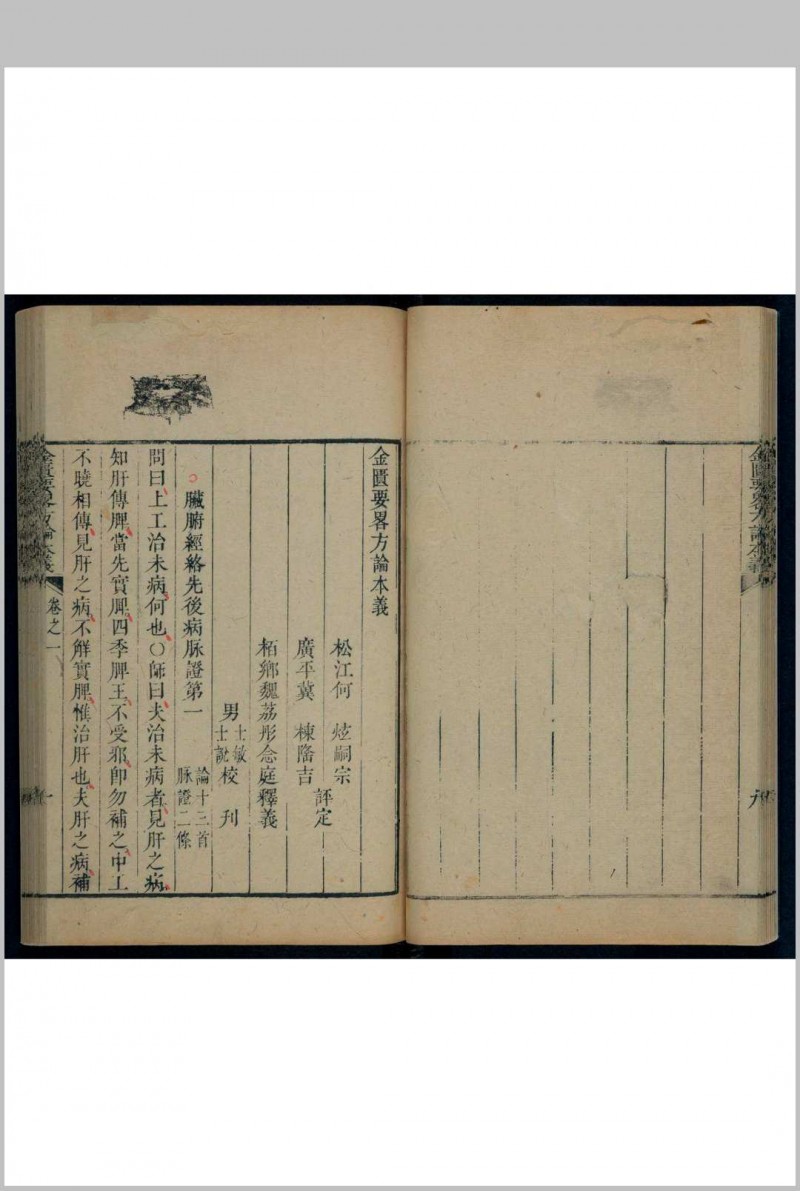 金匱要畧方論本義
金匱要畧方論本義
松江何　炫嗣宗
廣平冀　棟隆吉
評定
栢鄉魏荔彤念庭釋義
男士敏
士說校　刊
臟腑經絡先後病脉證第一
論十三首
脉證二條
問曰上工治未病何也○師曰夫治未病者見肝之病
知肝傳脾當先實脾四季脾王不受邪卽勿補之中工
不曉相傳見肝之病不解實脾惟治肝也夫肝之病補
金匱要畧方論本義
卷之一
一